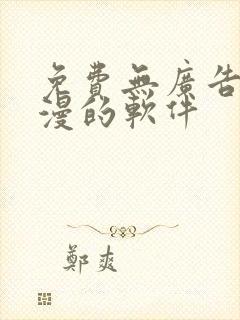 免費無廣告
漫的軟件
鄭爽